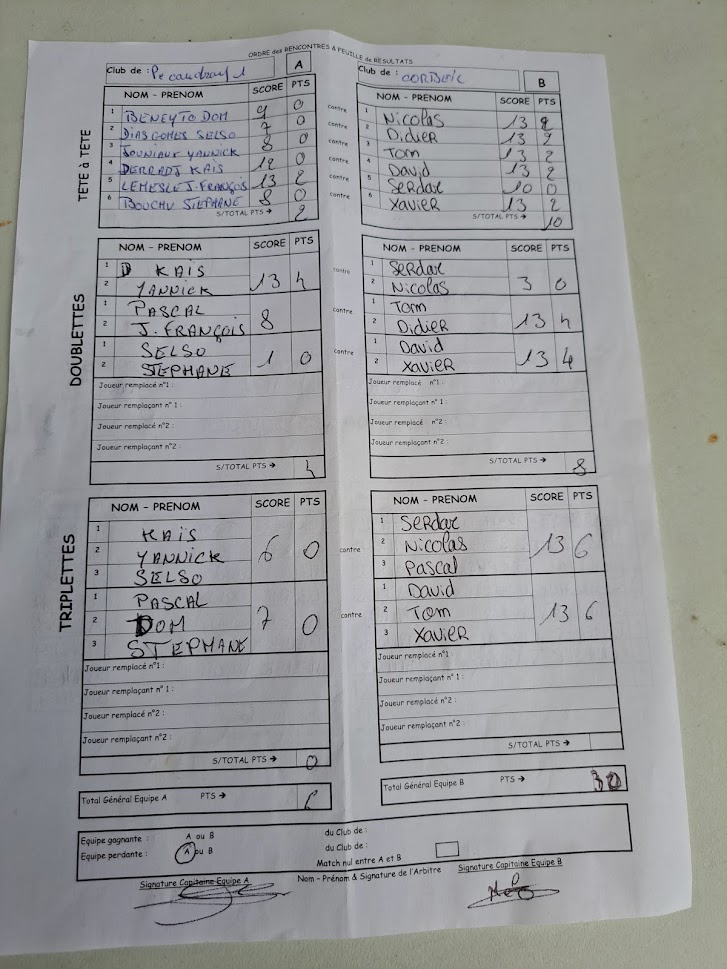 ORDRE des RENCONTRES & FEUILLE de RESULTATS
Club de : A
Club de : B
TETE à TETE
NOM - PRENOM SCORE PTS
1 BENEYTO DOM 9 0
2 DIAS GOMES SELSO 7 0
3 JOUNIAUX YANNICK 8 0
4 DERRADJ KAIS 12 0
5 LEMESLE J. FRANÇOIS 13 2
6 BOUCHU STEPHANE 8 0
S/TOTAL PTS → 2
contre
contre
contre
contre
contre
contre
NOM - PRENOM SCORE PTS
1 Nicolas 13 2
2 Didier 13 2
3 Tom 13 2
4 David 13 2
5 Serdar 10 0
6 Xavier 13 2
S/TOTAL PTS → 10
DOUBLETTES
NOM - PRENOM SCORE PTS
1 D KAIS
2 YANNICK 13 4
1 PASCAL
2 J. FRANÇOIS 8
1 SELSO
2 STEPHANE 1 0
Joueur remplacé n°1 :
Joueur remplaçant n°1 :
Joueur remplacé n°2 :
Joueur remplaçant n°2 :
S/TOTAL PTS → 4
contre
contre
contre
NOM - PRENOM SCORE PTS
1 Serdar
2 Nicolas 3 0
1 Tom
2 Didier 13 4
1 David
2 Xavier 13 4
Joueur remplacé n°1 :
Joueur remplaçant n°1 :
Joueur remplacé n°2 :
Joueur remplaçant n°2 :
S/TOTAL PTS → 8
TRIPLETTES
NOM - PRENOM SCORE PTS
1 KAIS
2 YANNICK 6 0
3 SELSO
1 PASCAL
2 DOM 7 0
3 STEPHANE
Joueur remplacé n°1 :
Joueur remplaçant n°1 :
Joueur remplacé n°2 :
Joueur remplaçant n°2 :
S/TOTAL PTS → 0
contre
contre
NOM - PRENOM SCORE PTS
1 Serdar
2 Nicolas 13 6
3 Pascal
1 David
2 Tom 13 6
3 Xavier
Joueur remplacé n°1 :
Joueur remplaçant n°1 :
Joueur remplacé n°2 :
Joueur remplaçant n°2 :
S/TOTAL PTS →
Total Général Equipe A PTS → 6
Total Général Equipe B PTS → 30
Equipe gagnante : A ou B du Club de :
Equipe perdante : A ou B du Club de :
Match nul entre A et B
Signature Capitaine Equipe A
Nom - Prénom & Signature de l'Arbitre
Signature Capitaine Equipe B